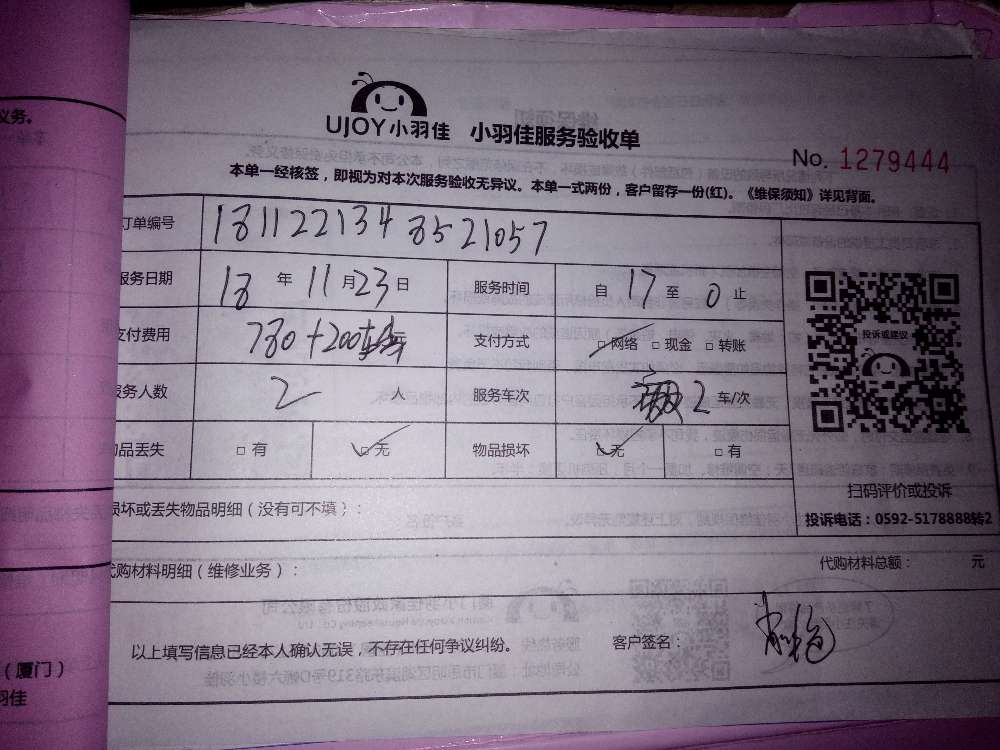 义务。
UJOY小羽佳 小羽佳服务验收单
No. 1279444
本单一经核签，即视为对本次服务验收无异议。本单一式两份，客户留存一份(红)。《维保须知》详见背面。
订单编号 1811221348521057
服务日期 18 年 11 月 23 日 服务时间 自 17 至 0 止
支付费用 780+200 支付方式 □网络 □现金 □转账
服务人数 2 人 服务车次 2 车/次
物品丢失 □有 □无 物品损坏 □无 □有
投诉或建议
扫码评价或投诉
投诉电话：0592-5178888转2
损坏或丢失物品明细（没有可不填）：
代购材料明细（维修业务）： 代购材料总额： 元
以上填写信息已经本人确认无误，不存在任何争议纠纷。 客户签名：
（厦门）
羽佳